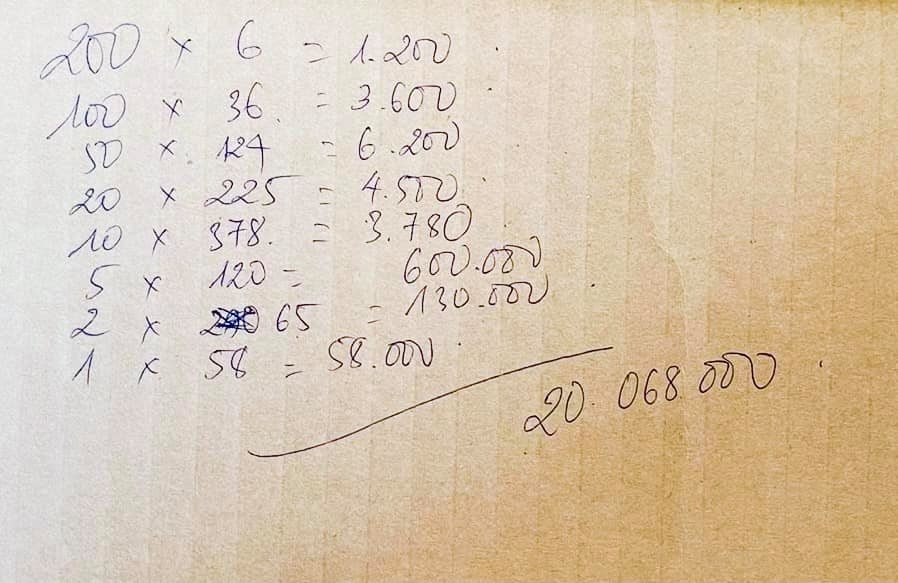 200 x 6 = 1.200
100 x 36 = 3.600
50 x 124 = 6.200
20 x 225 = 4.500
10 x 378. = 3.780
5 x 120 = 600.000
2 x 65 = 130.000
1 x 58 = 58.000
20.068.000